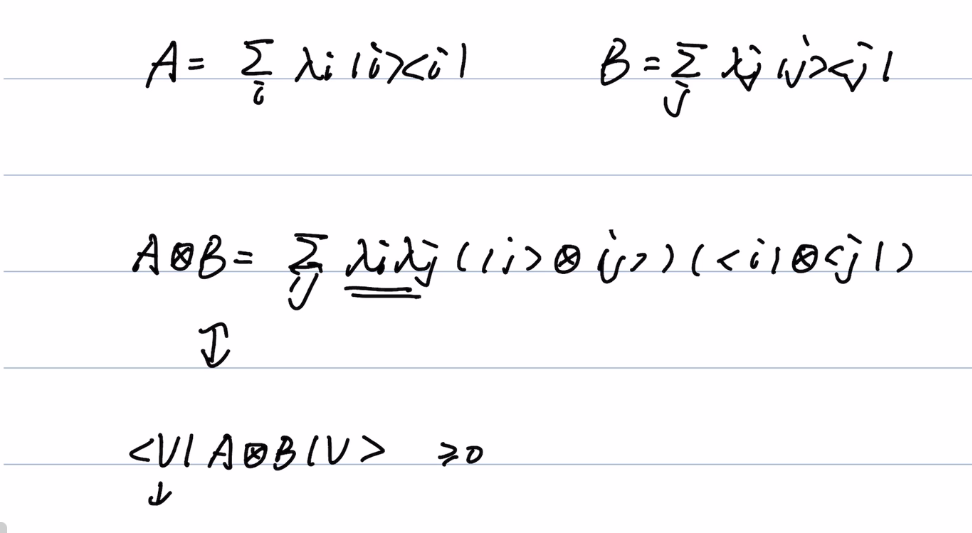 A = ∑_i λi |i><i|   B = ∑_j λj |j><j|
A⊗B = ∑_ij λiλj (|i>⊗|j>) (<i|⊗<j|)
↓
<V| A⊗B |V> ≥0
↓